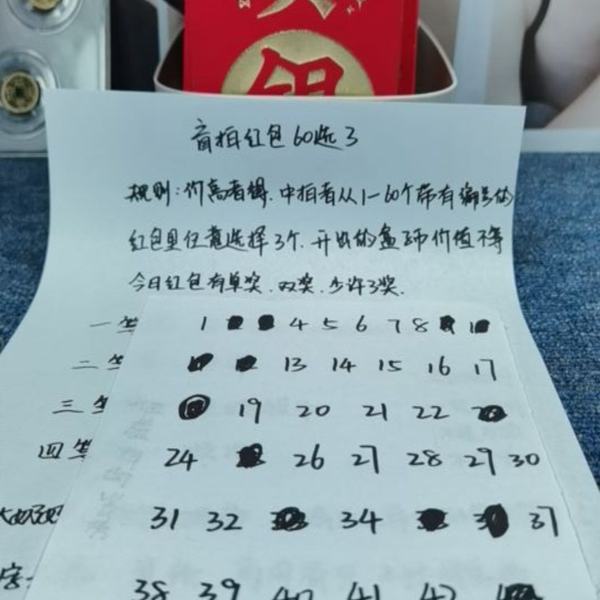 盲拍红包60选3
规则:价高者得.中拍者从1-60个带有编号的
红包里任意选择3个.开出的盒币价值不等
今日红包有单奖.双奖.少许3奖.
一等
1 4 5 6 7 8
二等
13 14 15 16 17
三等
19 20 21 22
四等
24 26 27 28 29 30
31 32 34 37
38 39 40 41 42